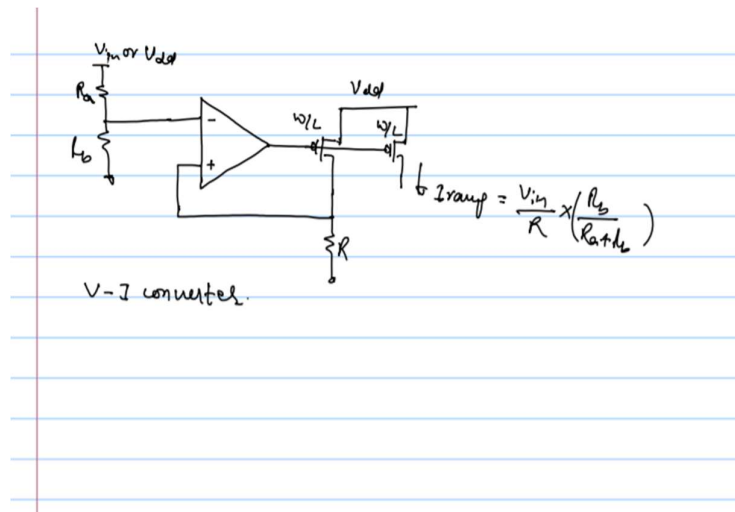 Vin or Vdd
Ra
Rb
-
+
W/L
Vdd
W/L
R
Iramp = Vin/R × (Rb/(Ra+Rb))
V-I converter.